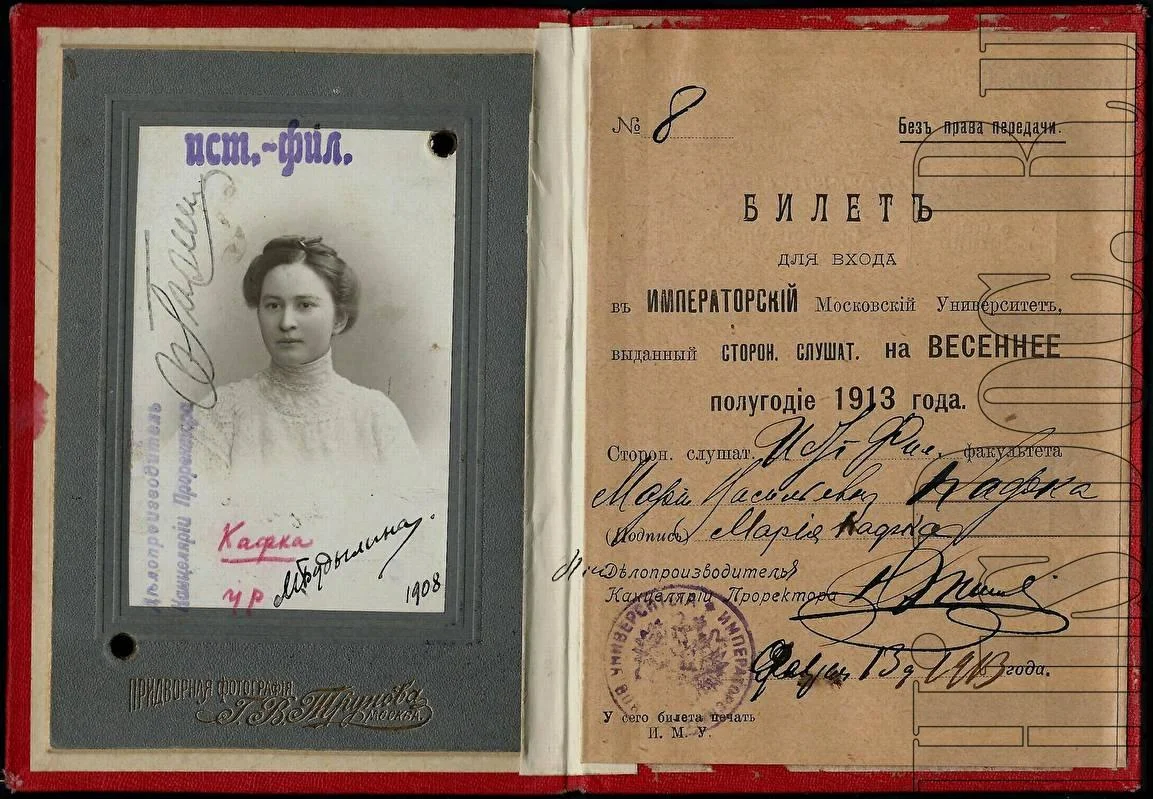 ист.-фил.
Дѣлопроизводитель
Канцеляріи Проректора
Кафка
ур
МБудылина.
1908
ПРИДВОРНАЯ ФОТОГРАФІЯ
І. В. Трунова
МОСКВА
№ 8
Безъ права передачи.
БИЛЕТЪ
ДЛЯ ВХОДА
въ ИМПЕРАТОРСКІЙ Московскій Университетъ,
выданный СТОРОН. СЛУШАТ. на ВЕСЕННЕЕ
полугодіе 1913 года.
Сторон. слушат. Ист-Фил. факультета
Маріи Васильевны Кафка
(Подпись) Марія Кафка
Дѣлопроизводитель
Канцеляріи Проректора
13 д 1913 года.
У сего билета печать
И. М. У.